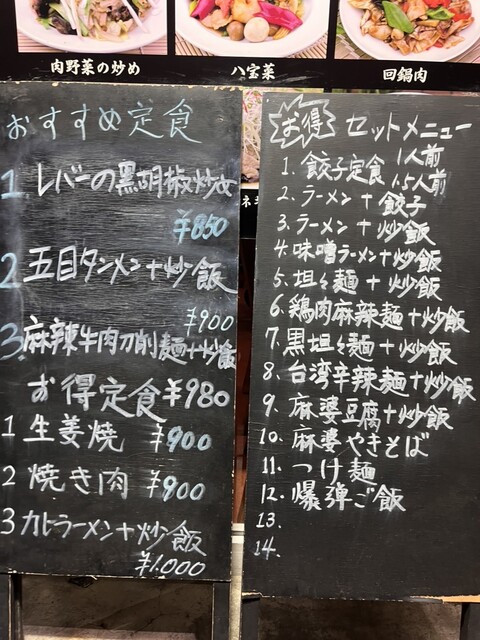 肉野菜の炒め
八宝菜
回鍋肉
おすすめ定食
1 レバーの黒胡椒炒め
¥850
2 五目タンメン+炒飯
¥900
3. 麻辣牛肉刀削麺+炒飯
お得定食 ¥980
1 生姜焼 ¥900
2 焼き肉 ¥900
3 カルビラーメン+炒飯
¥1.000
お得 セットメニュー
1. 餃子定食 1人前
1.5人前
2. ラーメン+餃子
3. ラーメン+炒飯
4. 味噌ラーメン+炒飯
5. 坦々麺+炒飯
6. 鶏肉麻辣麺+炒飯
7. 黒坦々麺+炒飯
8. 台湾辛辣麺+炒飯
9. 麻婆豆腐+炒飯
10. 麻婆やきそば
11. つけ麺
12. 爆弾ご飯
13.
14.